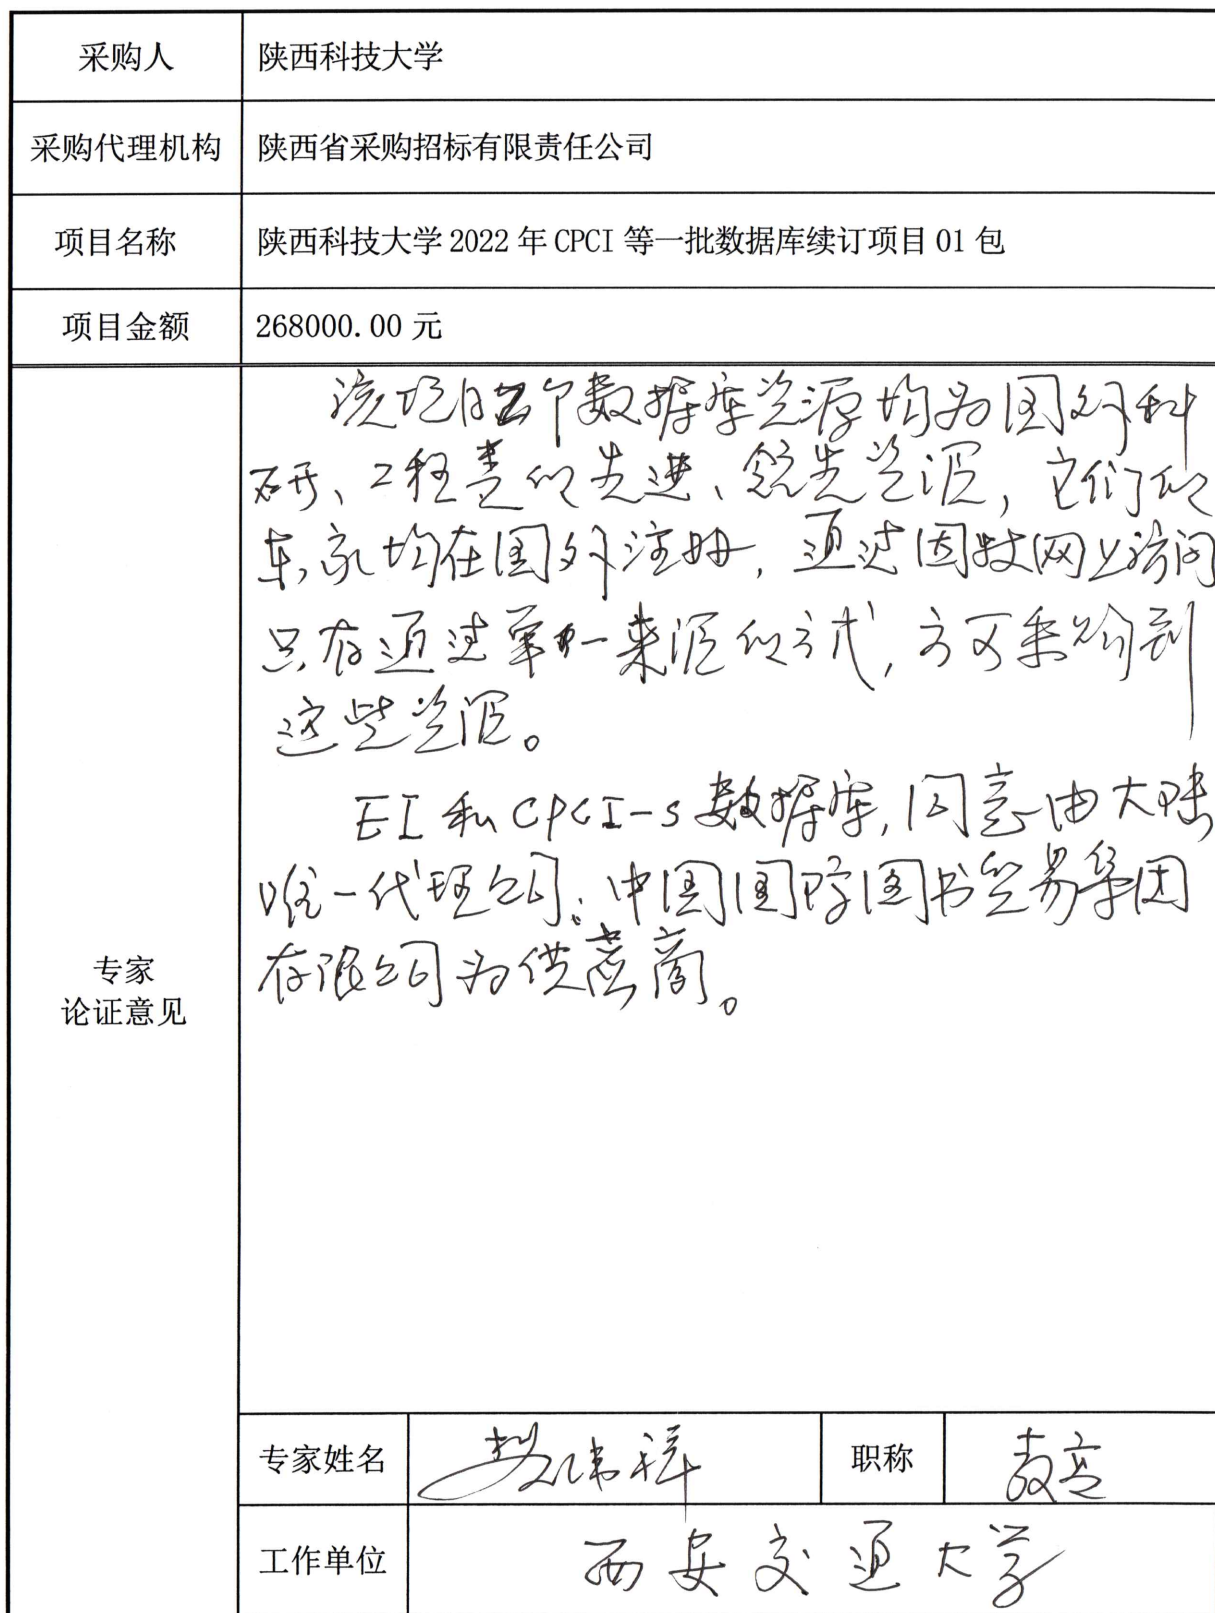 采购人 陕西科技大学
采购代理机构 陕西省采购招标有限责任公司
项目名称 陕西科技大学2022年CPCI等一批数据库续订项目01包
项目金额 268000.00元
专家
论证意见
该项目 个数据库资源均为国外科
研、工程类的先进、领先资源，它们的
东家均在国外注册，通过 网上访问
只有通过单一来源的方式，方可采购到
这些资源。
EI和CPCI-S数据库，同意由大陆
唯一代理公司：中国国际图书贸易集团
有限公司为供应商。
专家姓名 职称
工作单位 西安交通大学